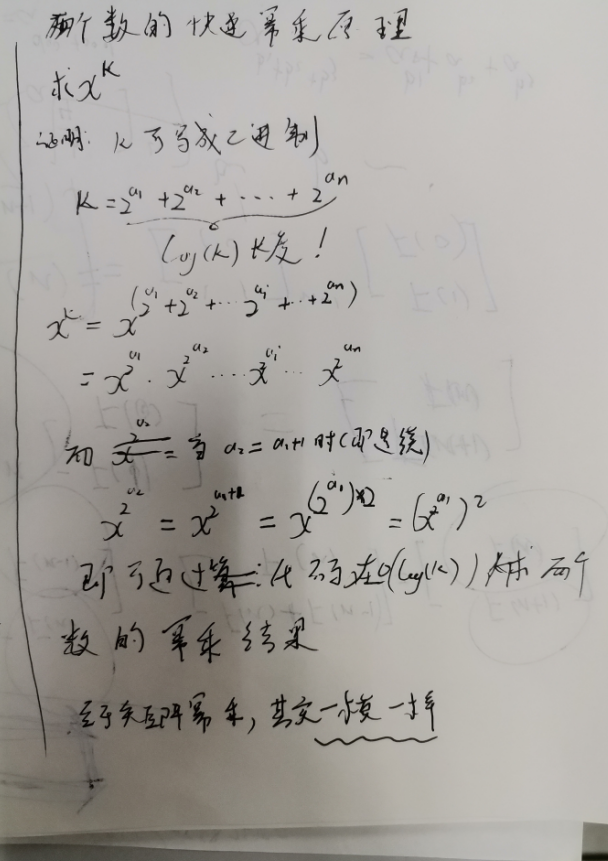 两个数的快速幂乘原理
求x^K
证明: K可写成二进制
K = 2^{a_1} + 2^{a_2} + ⋯ + 2^{a_n}
log(K)长度!
x^K = x^{(2^{a_1}+2^{a_2}+⋯2^{a_i}+⋯+2^{a_n})}
= x^{2^{a_1}} · x^{2^{a_2}} ⋯ x^{2^{a_i}} ⋯ x^{2^{a_n}}
而 当 a_2 = a_1+1 时(连续)
x^{2^{a_2}} = x^{2^{a_1+1}} = x^{(2^{a_1})*2} = (x^{2^{a_1}})^2
即可通过 在O(log(K)) 求 两个
数的幂乘结果
至于矩阵幂乘, 其实一模一样